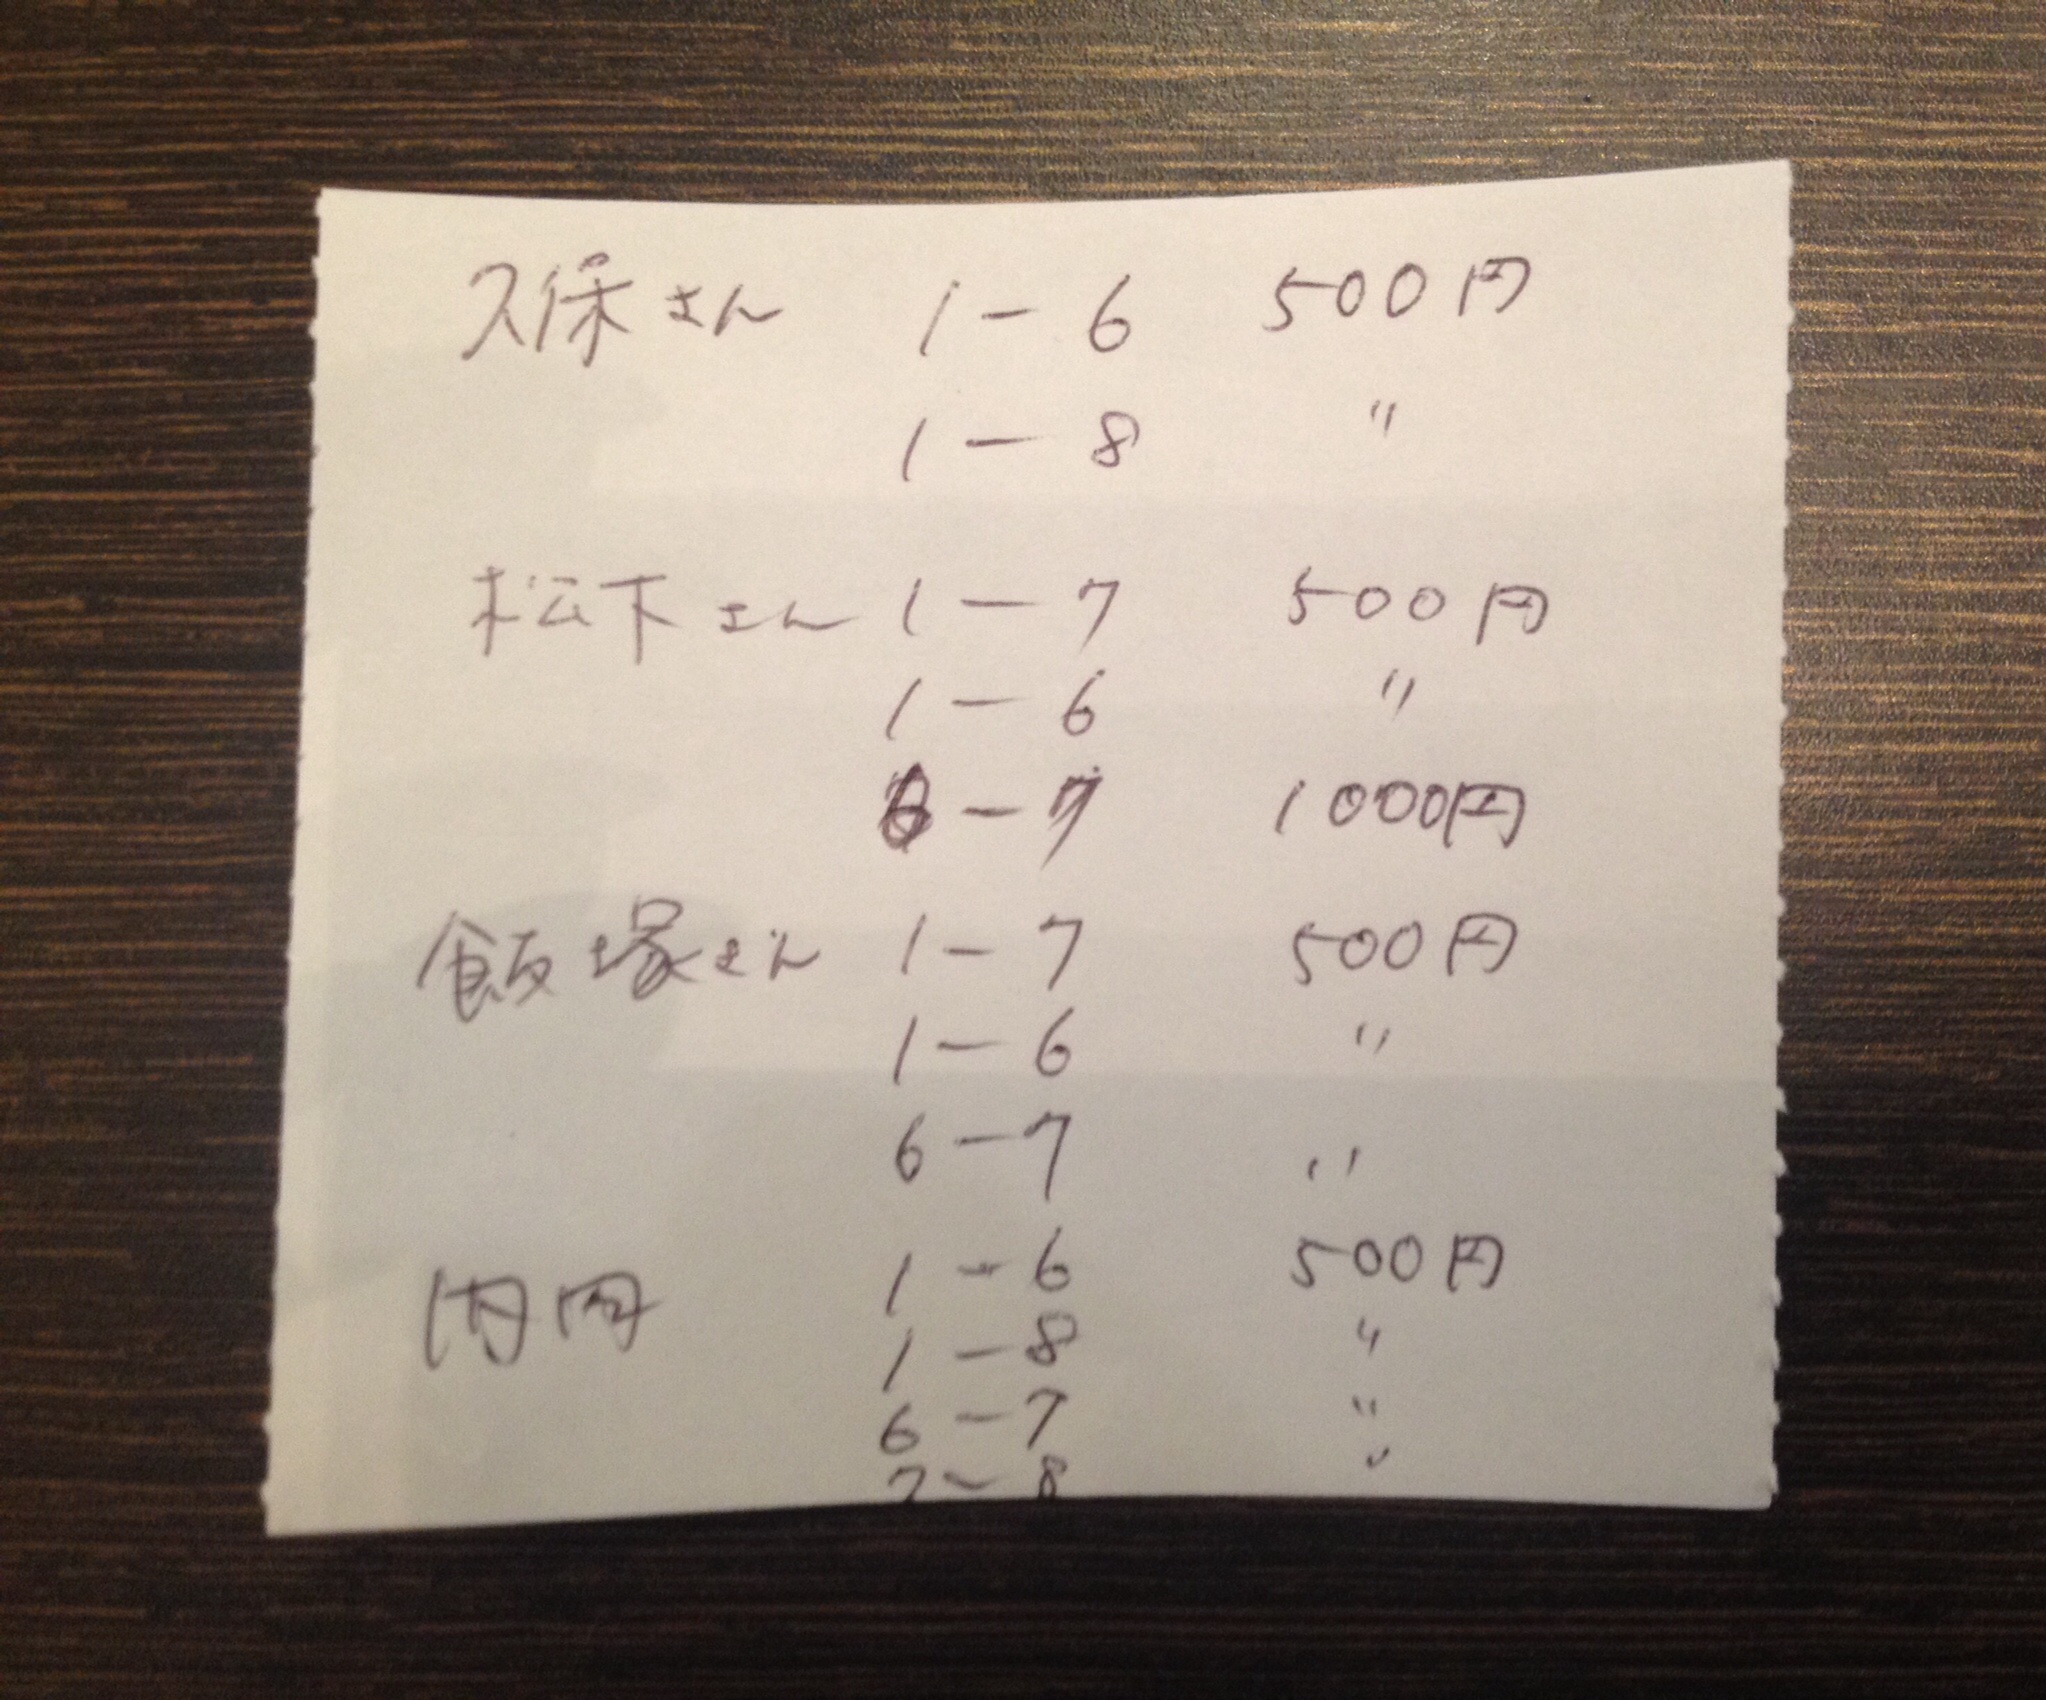 久保さん 1-6 500円
1-8 〃
松下さん 1-7 500円
1-6 〃
6-7 1000円
飯塚さん 1-7 500円
1-6 〃
6-7 〃
1-6 500円
1-8 〃
6-7 〃
7-8 〃